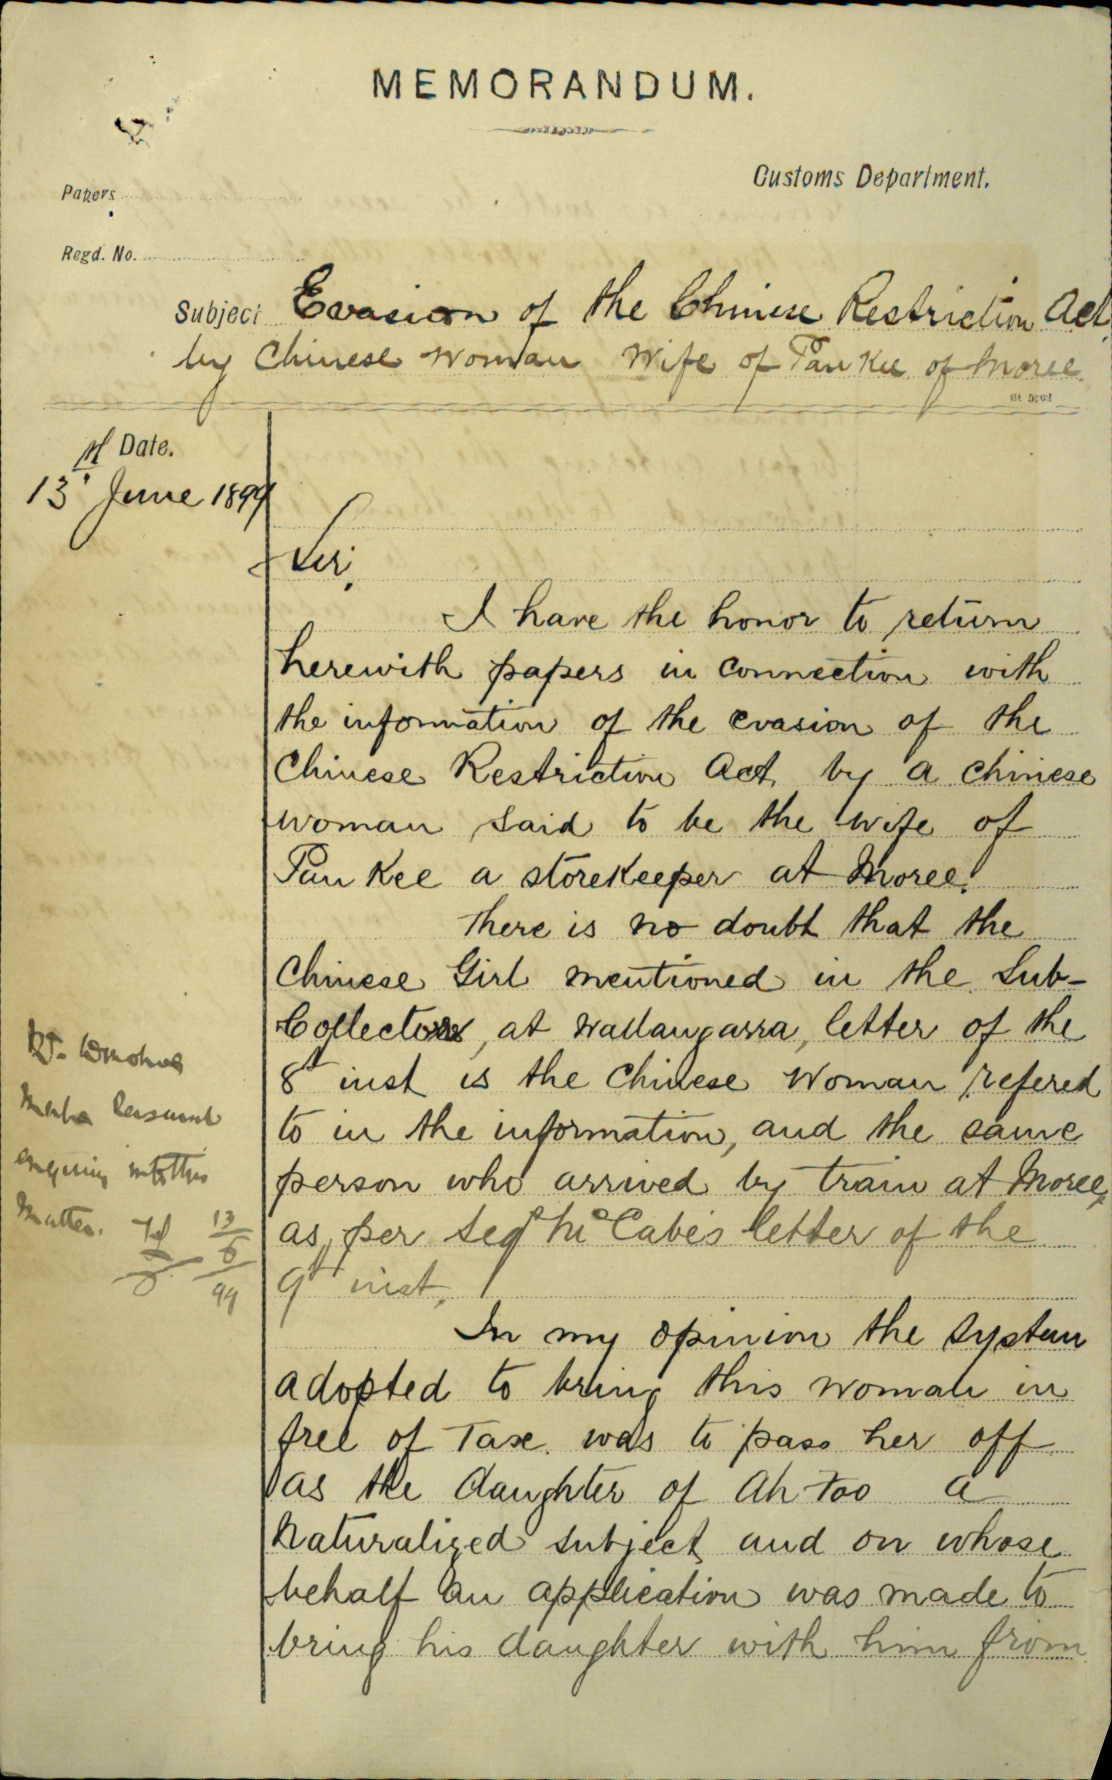 MEMORANDUM.
Customs Department.
Papers
Regd. No.
Subject Evasion of the Chinese Restriction Act
by Chinese Woman Wife of Pan Kee of Moree
Date.
13 June 1899
Sir,
I have the honor to return
herewith papers in connection with
the information of the evasion of the
Chinese Restriction Act, by a Chinese
woman said to be the wife of
Pan Kee a storekeeper at Moree.
There is no doubt that the
Chinese Girl mentioned in the Sub-
Collectors, at Wallangarra, letter of the
8th inst is the Chinese Woman refered
to in the information, and the same
person who arrived by train at Moree,
as per Sergt McCabe's letter of the
9th inst.
In my opinion the system
adopted to bring this woman in
free of Tax was to pass her off
as the daughter of Ah Too a
Naturalized subject and on whose
behalf an application was made to
bring his daughter with him from
Mr Donohoe
Make personal
enquiry into this
Matter.
13
6
99